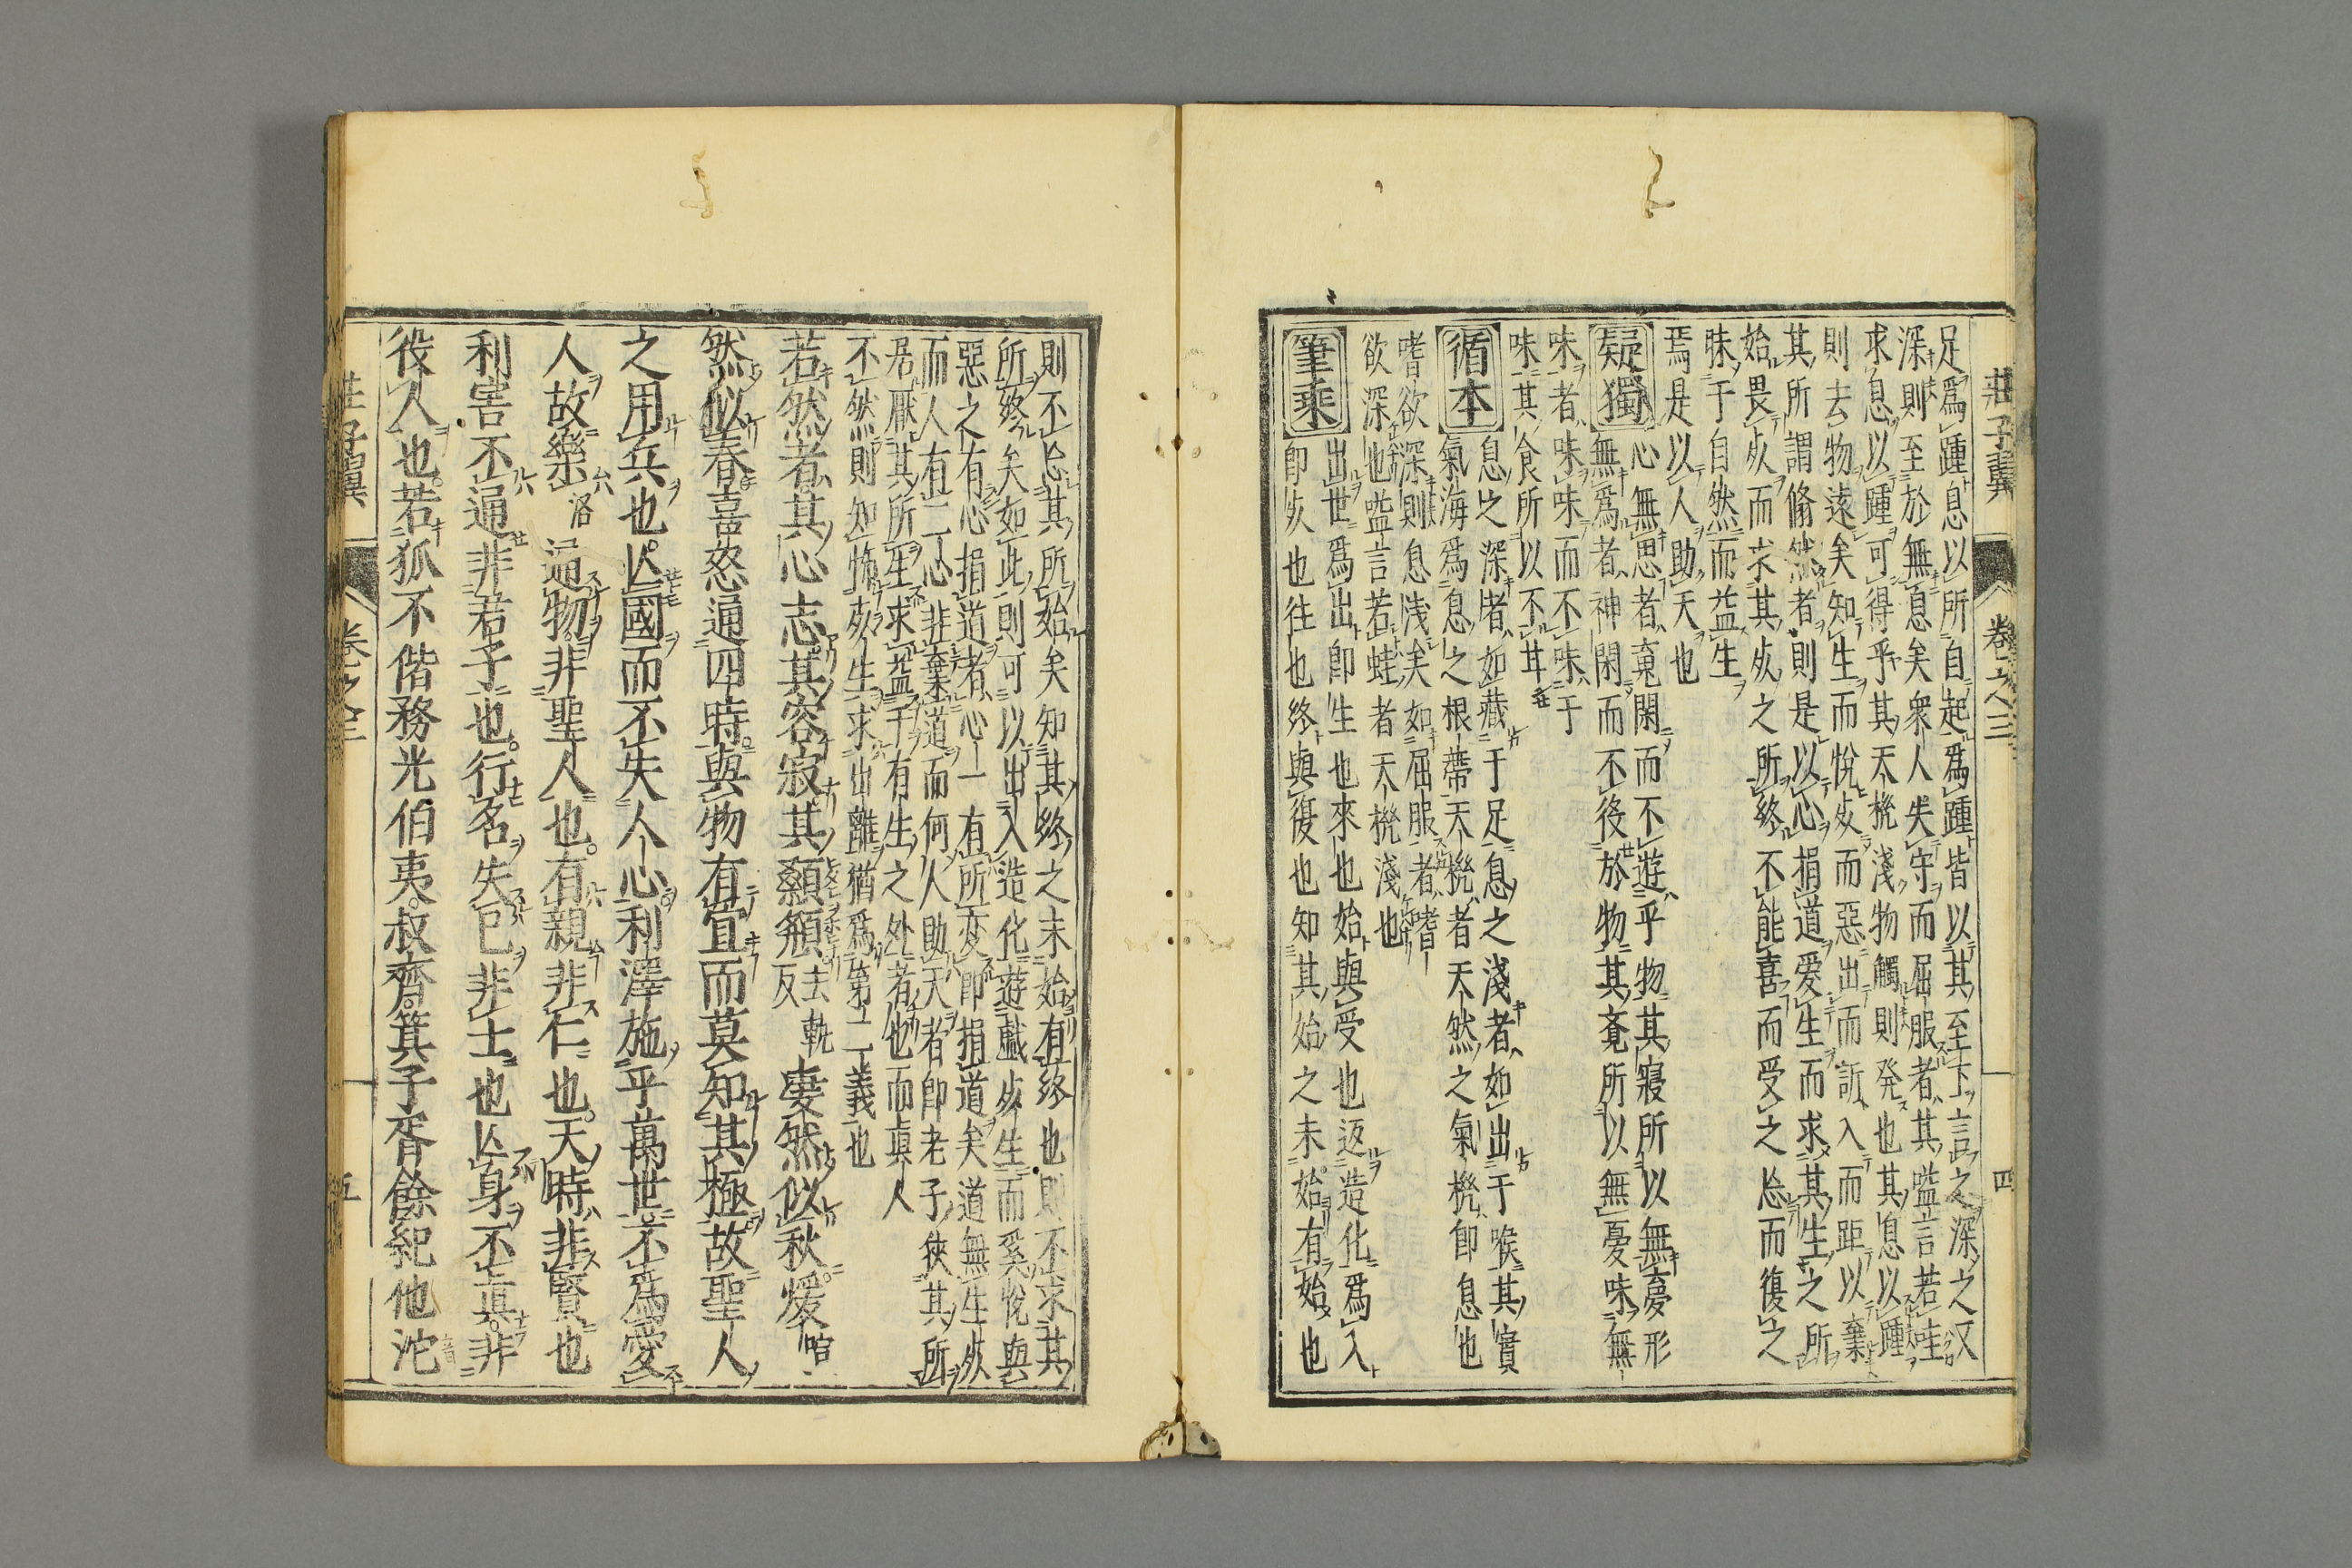 莊子翼 卷之三 四
足爲踵息以所自起爲踵皆以其至下言之深之又
深則至於無息矣衆人失守而屈服者其嗌言若哇
求息以踵可得乎其天機淺物觸則発也其息以踵
則去物遠矣知生而悅死而惡出而訢入而距以棄
其所謂翛然者則是以心捐道爱生而求其生之所
始畏死而求其死之所終不能喜而受之忘而復之
昧于自然而益生
焉是以人助天也
疑獨
心無思者䰟閑而不遊乎物其寢所以無夣形
無爲者神閑而不役於物其竟所以無憂味無
味者味味而不味于
味其食所以不甘
循本
息之深者如藏于足息之淺者如出于喉其實
氣海爲息之根蒂天機者天然之氣機即息也
嗜欲深則息浅矣如屈服者嗜
欲深也嗌言若蛙者天機淺也
筆乘
出世爲出即生也來也始與受也返造化爲入
即死也往也終與復也知其始之未始有始也
則不忘其所始矣知其終之未始有終也則不求其
所終矣如此則可以出入造化遊戱死生而奚悅與
惡之有心捐道者心一有所变即捐道矣道無生死
而人有二心非棄道而何人助天者即老子狹其所
居厭其所生求益于有生之处者也而真人
不然則知怖死生求出離猶爲第二義也
若然者其心志其容寂其顙頯去軌反凄然似秋煖喧
然似春喜怒通四時與物有宜而莫知其極故聖人
之用兵也亾國而不失人心利澤施乎萬世不爲愛
人故樂洛通物非聖人也有親非仁也天時非賢也
利害不通非君子也行名失己非士也亾身不真非
役人也若狐不偕務光伯夷叔齊箕子胥餘紀他沱
莊子翼 卷之三 五